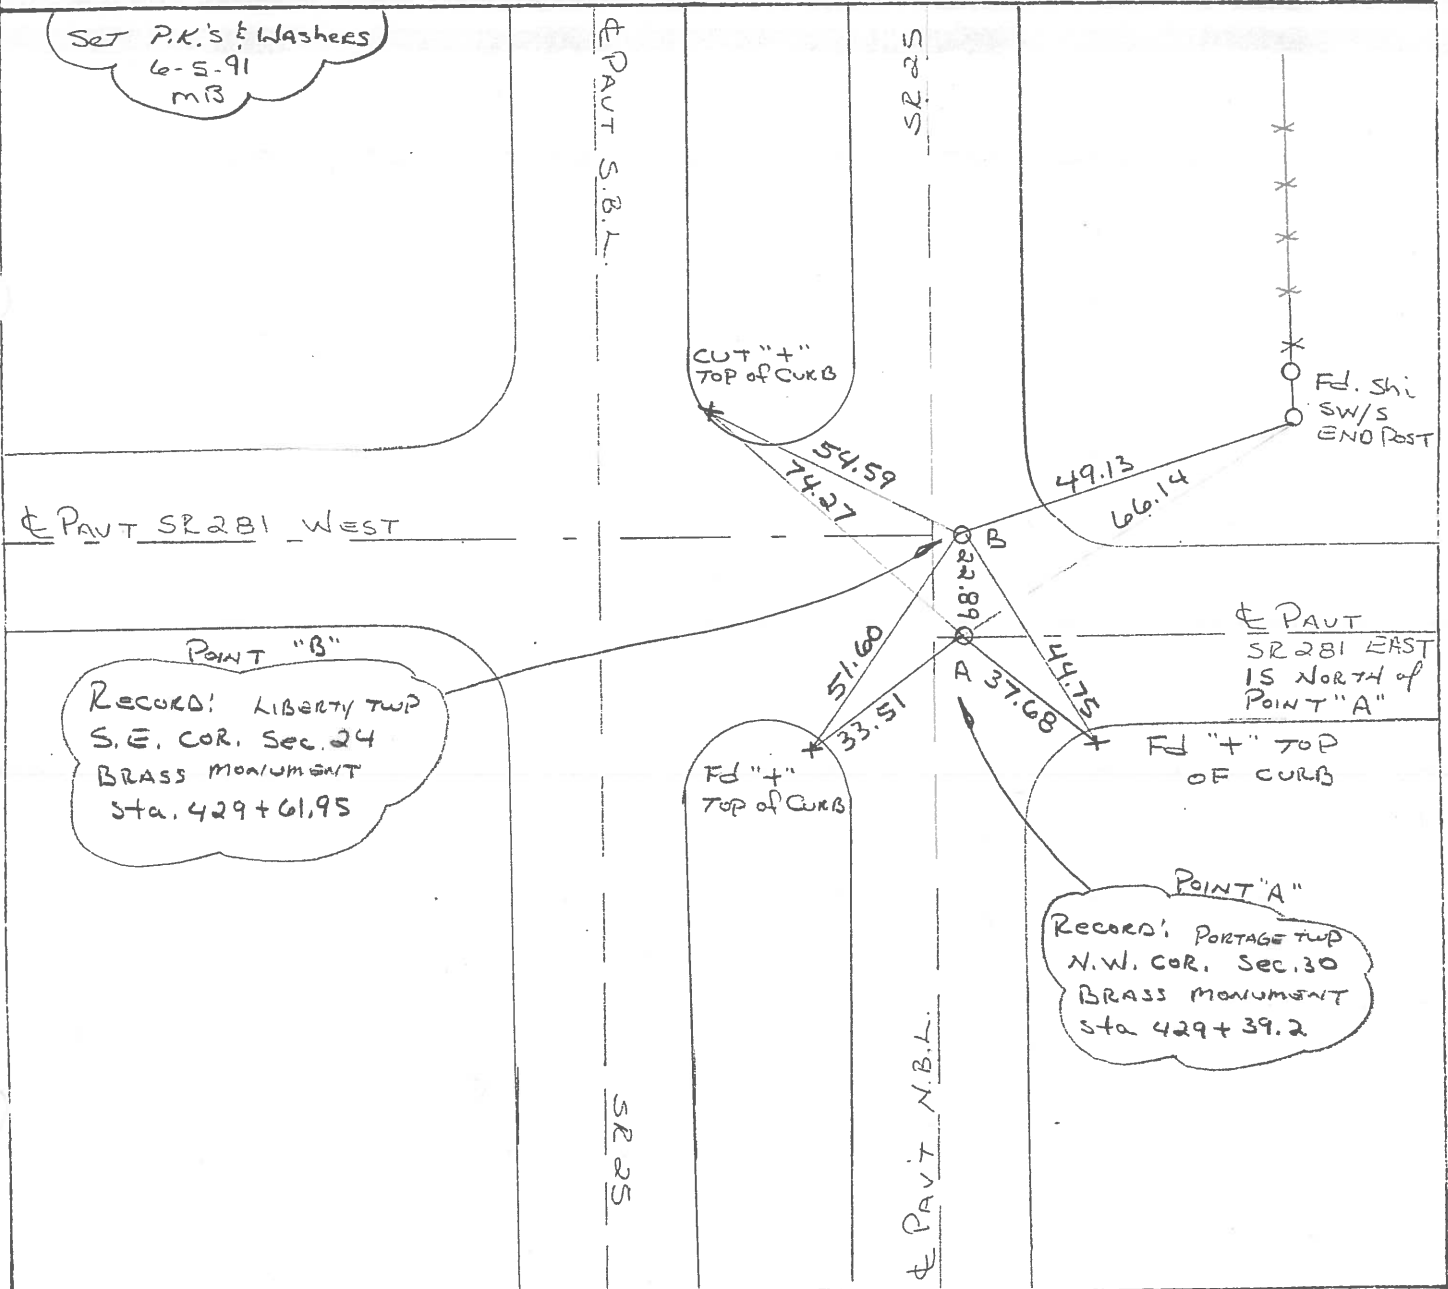 SET P.K.'S & WASHERS
6-5-91
MB
℄ PAVT S.B.L.
SR 25
CUT "+"
TOP of CURB
Fd. Shi
SW/S
END POST
54.59
74.27
49.13
66.14
℄ PAVT SR 281 WEST
B
22.89
A
51.60
33.51
44.75
37.68
℄ PAVT
SR 281 EAST
IS NORTH of
POINT "A"
POINT "B"
RECORD: LIBERTY TWP
S.E. COR. Sec. 24
BRASS MONUMENT
Sta. 429+61.95
Fd "+"
TOP of CURB
Fd "+" TOP
OF CURB
POINT "A"
RECORD: PORTAGE TWP
N.W. COR. Sec. 30
BRASS MONUMENT
Sta 429+39.2
SR 25
℄ PAV'T N.B.L.